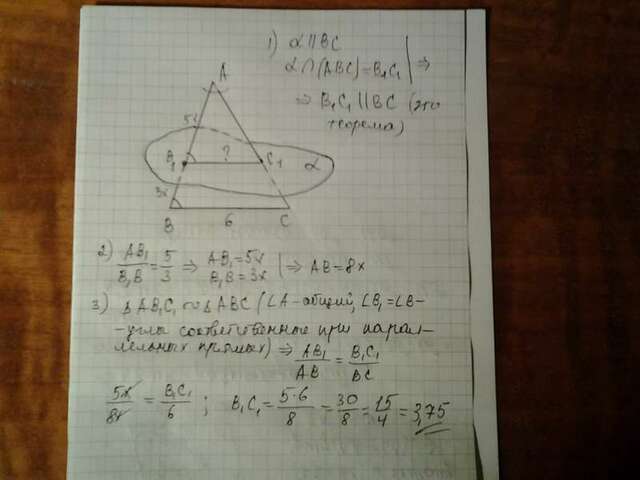 1) α || BC
α ∩ (ABC) = B₁C₁ | ⇒
⇒ B₁C₁ || BC (это
теорема)
A
5x
B₁
?
C₁
α
3x
B
6
C
2) AB₁/B₁B = 5/3 ⇒ AB₁ = 5x
B₁B = 3x | ⇒ AB = 8x
3) Δ AB₁C₁ ∾ Δ ABC (∠A - общий, ∠B₁ = ∠B -
- углы соответственные при парал-
лельных прямых) ⇒ AB₁/AB = B₁C₁/BC
5x/8x = B₁C₁/6 ; B₁C₁ = 5·6/8 = 30/8 = 15/4 = 3,75